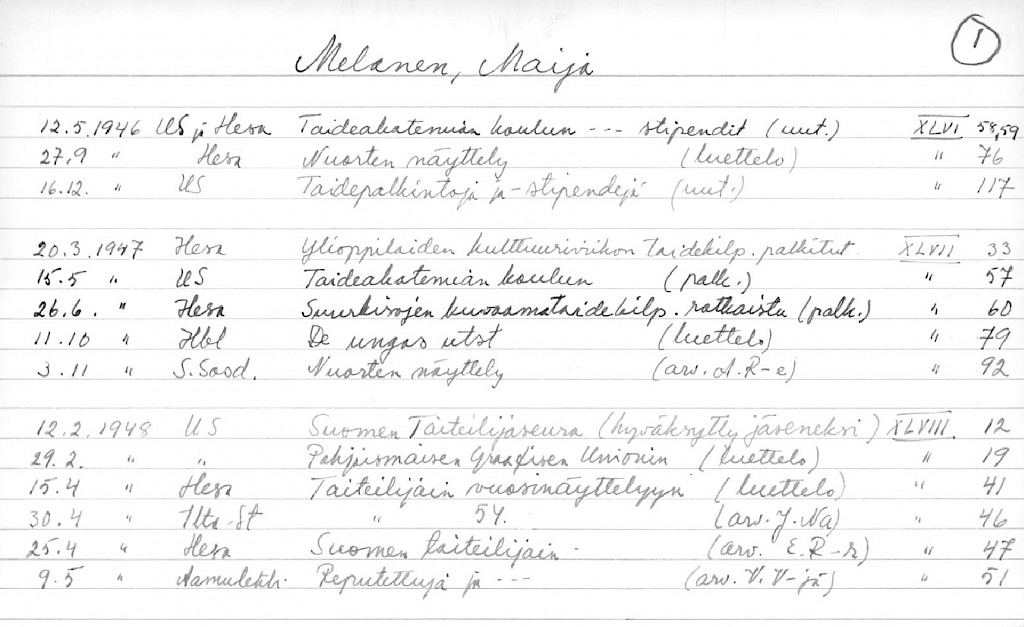 1
Melanen, Maija
12.5.1946 US ja Hesa Taideakatemian koulun --- stipendit (uut.) XLVI 58,59
27.9 " Hesa Nuorten näyttely (luettelo) " 76
16.12. " US Taidepalkintoja ja -stipendejä (uut.) " 117
20.3.1947 Hesa Ylioppilaiden kulttuuriviikon taidekilp. palkitut. XLVII 33
15.5 " US Taideakatemian koulun (palk.) " 57
26.6. " Hesa Suurkisojen kuvaamataidekilp. ratkaistu (palk.) " 60
11.10 " Hbl De ungas utst (luettelo) " 79
3.11 " S.Sosd. Nuorten näyttely (arv. A.R-e) " 92
12.2.1948 US Suomen Taiteilijaseura (hyväksytty jäseneksi) XLVIII. 12
29.2. " " Pohjoismaisen Graafisen Unionin (luettelo) " 19
15.4 " Hesa Taiteilijain vuosinäyttelyyn (luettelo) " 41
30.4 " Ilta-St " 54. (arv. J.Na) " 46
25.4 " Hesa Suomen taiteilijain - (arv. E.R-r) " 47
9.5 " Aamulehti. Reputettuja ja --- (arv. V.V-jä) " 51